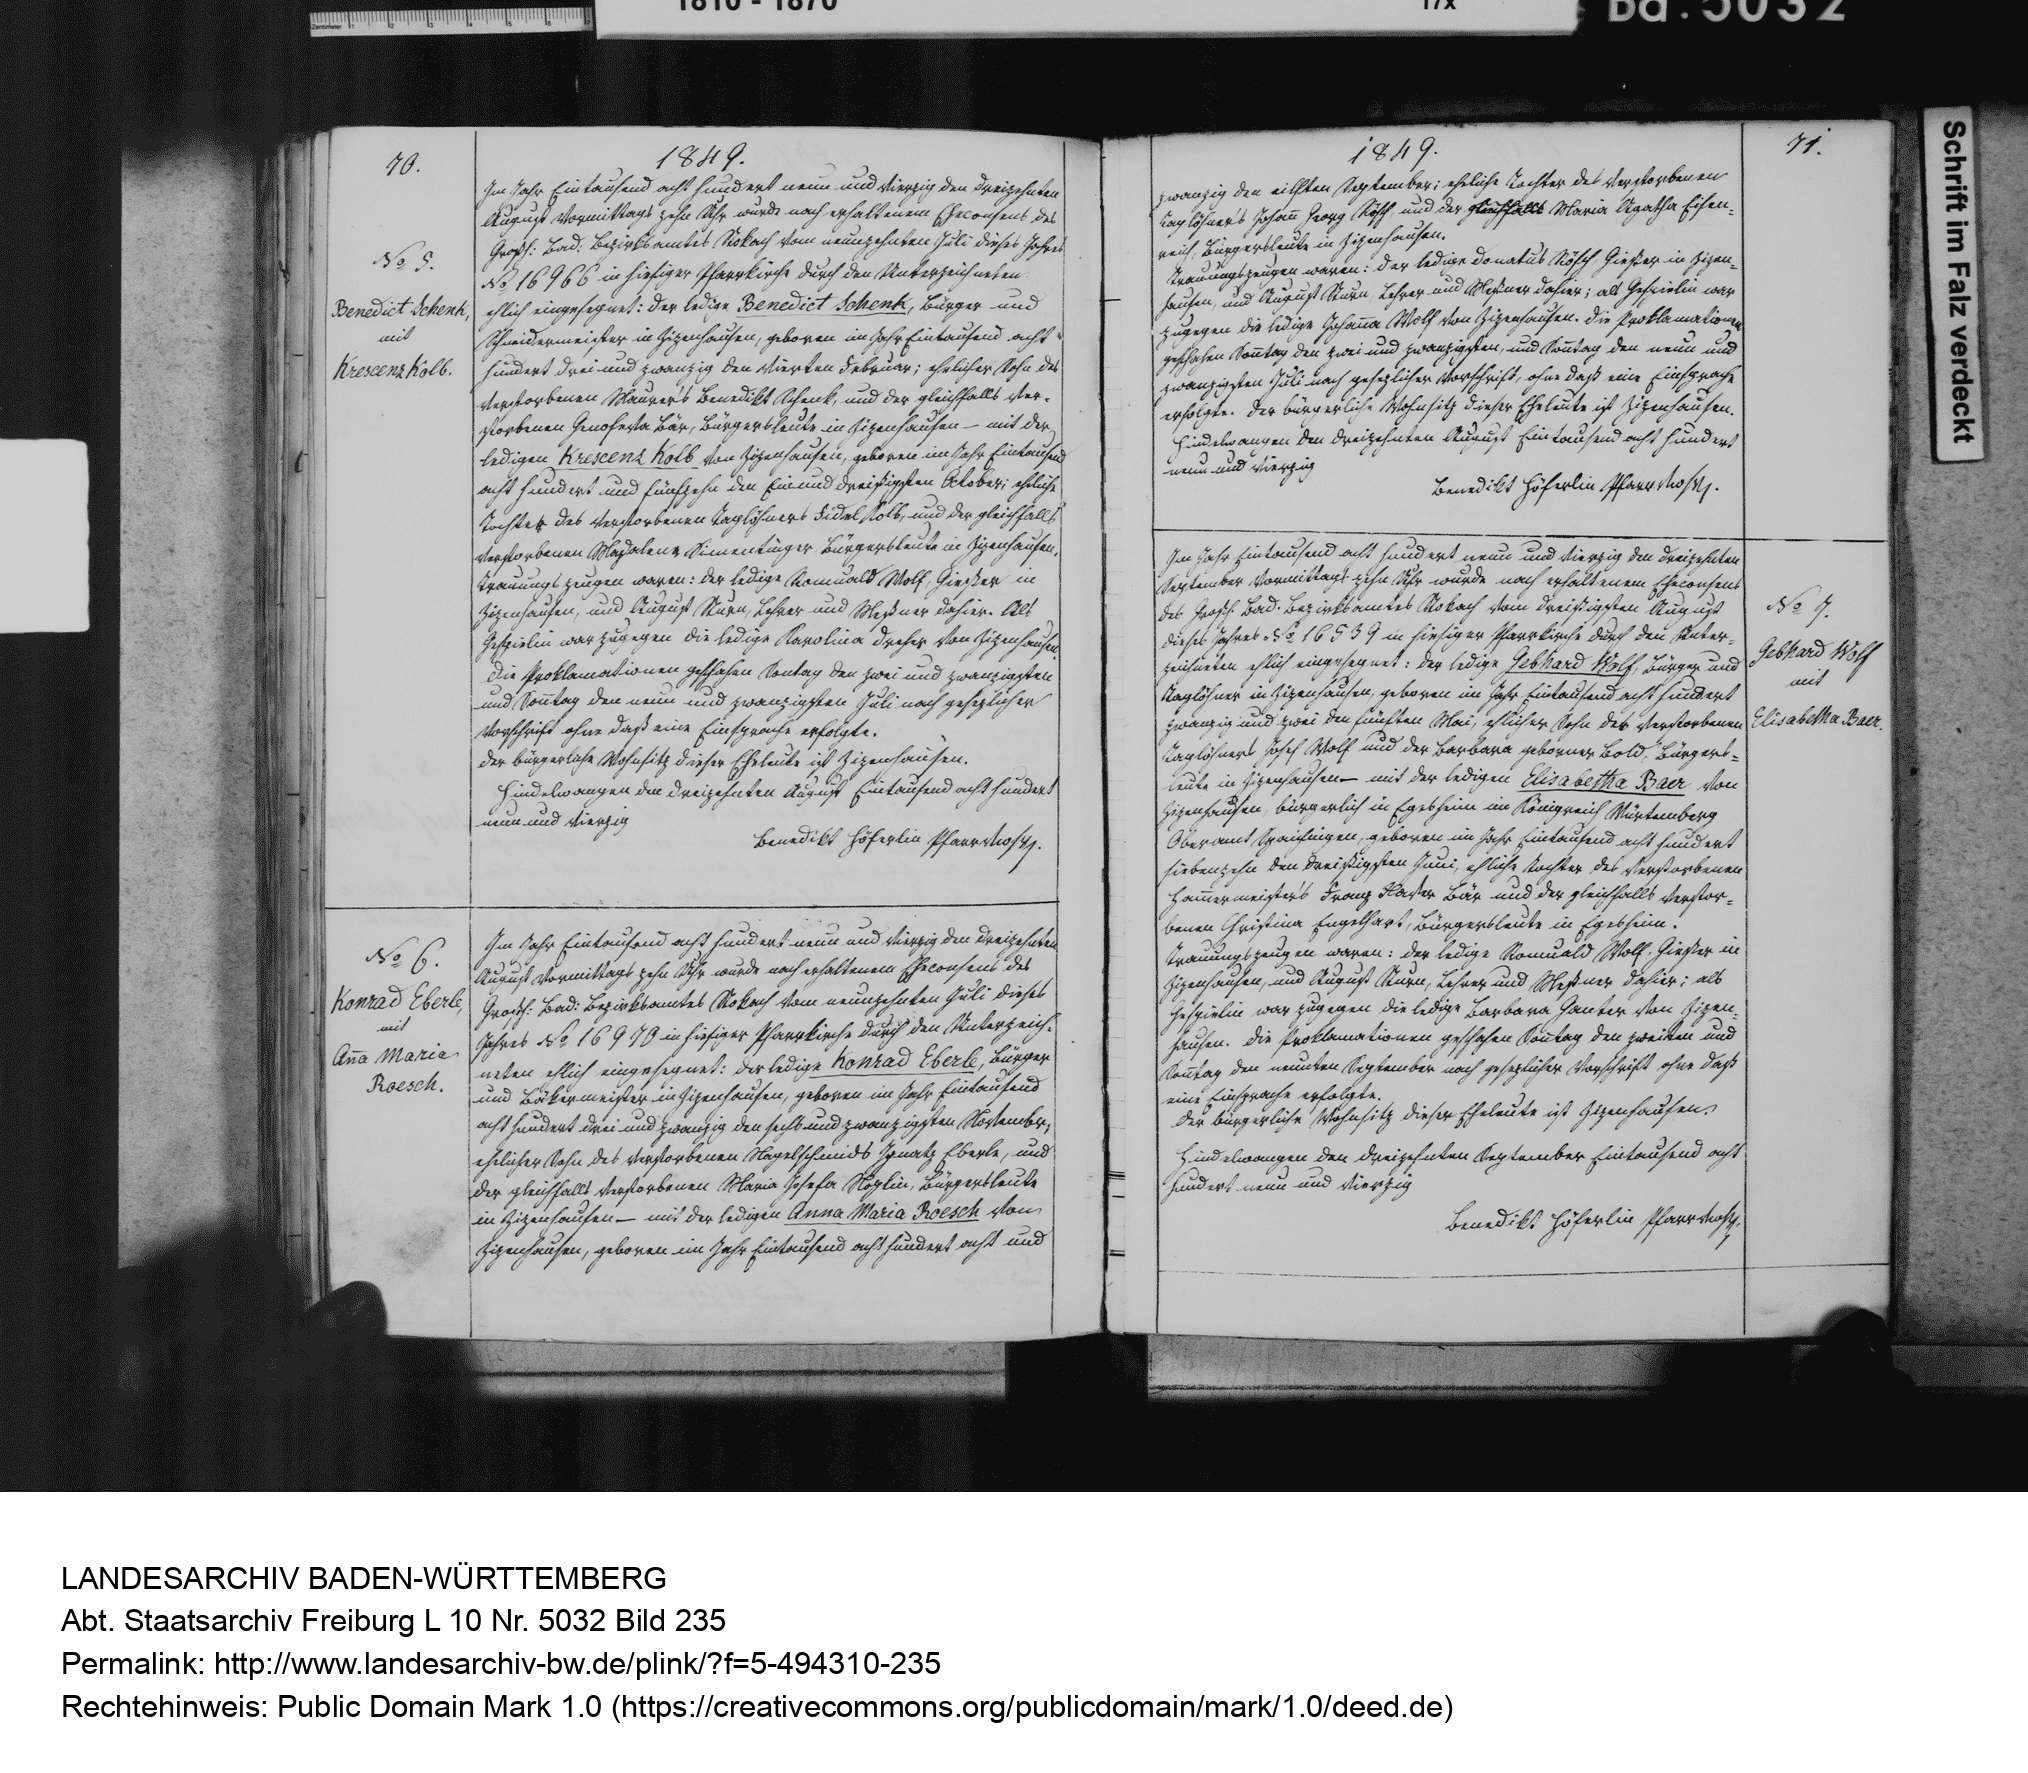 1810 - 1870
17x
Bd. 5032
Schrift im Falz verdeckt
70.
1849.
No 5.
Benedict Schenk,
mit
Krescenz Kolb.
Im Jahr Eintausend acht hundert neun und vierzig den dreizehnten
August Vormittags zehn Uhr wurde nach erhaltenem Eheconsens des
Großh: Bad: Bezirksamtes Stokach vom neunzehnten Juli dieses Jahres
No 16966 in hiesiger Pfarrkirche durch den Unterzeichneten
ehlich eingesegnet: der ledige Benedict Schenk, Bürger und
Schneidermeister in Zizenhausen, geboren im Jahr Eintausend acht
hundert drei und zwanzig den vierten Februar; ehelicher Sohn des
verstorbenen Maurers Benedikt Schenk, und der gleichfalls ver-
storbenen Genofeva Bär, Bürgersleute in Zizenhausen – mit der
ledigen Krescenz Kolb von Zizenhausen, geboren im Jahr Eintausend
acht hundert und fünfzehn den Einunddreißigsten October; eheliche
Tochter des verstorbenen Taglöhners Fidel Kolb, und der gleichfalls
verstorbenen Magdalena Bürgersleute in Zizenhausen.
Trauungszeugen waren: der ledige Romuald Wolf, Gießer in
Zizenhausen, und August Sturn, Lehrer und Meßner dahier. Als
Gespielin war zugegen die ledige Karolina Dreher von Zizenhausen.
Die Proklamationen geschahen Sontag den zwei und zwanzigsten
und Soñtag den neun und zwanzigsten Juli nach gesezlicher
Vorschrift ohne daß eine Einsprache erfolgte.
Der bürgerliche Wohnsitz dieser Eheleute ist Zizenhausen.
Hindelwangen den dreizehnten August Eintausend acht hundert
neun und vierzig
Benedikt Höferlin Pfarrverw.
No 6.
Konrad Eberle,
mit
Aña Maria
Roesch.
Im Jahr Eintausend acht hundert neun und vierzig den dreizehnten
August Vormittags zehn Uhr wurde nach erhaltenem Eheconsens des
Großh: Bad: Bezirksamtes Stokach vom neunzehnten Juli dieses
Jahres No 16970 in hiesiger Pfarrkirche durch den Unterzeich-
neten ehlich eingesegnet: der ledige Konrad Eberle, Bürger
und Bäkermeister in Zizenhausen, geboren im Jahr Eintausend
acht hundert drei und zwanzig den sechs und zwanzigsten November;
ehelicher Sohn des verstorbenen Nagelschmids Ignatz Eberle, und
der gleichfalls verstorbenen Maria Josefa Bürgersleute
in Zizenhausen – mit der ledigen Anna Maria Roesch von
Zizenhausen, geboren im Jahr Eintausend acht hundert acht und
1849.
71.
zwanzig den eilften September; eheliche Tochter des verstorbenen
Taglöhners Johañ Georg Rösch, und der gleichfalls Maria Agatha Eisen-
reich, Bürgersleute in Zizenhausen.
Trauungszeugen waren: der ledige Donatus Rösch Gießer in Zizen-
hausen, und August Sturn, Lehrer und Meßner dahier; als Gespielin war
zugegen die ledige Johaña Wolf von Zizenhausen. Die Proklamationen
geschahen Soñtag den zwei und zwanzigsten, und Soñtag den neun und
zwanzigsten Juli nach gesezlicher Vorschrift, ohne daß eine Einsprache
erfolgte. Der bürgerliche Wohnsitz dieser Eheleute ist Zizenhausen.
Hindelwangen den dreizehnten August Eintausend acht hundert
neun und vierzig
Benedikt Höferlin Pfarrverw.
No 7.
Gebhard Wolf
mit
Elisabetha Baer.
Im Jahr Eintausend acht hundert neun und vierzig den dreizehnten
September Vormittags zehn Uhr wurde nach erhaltenem Eheconsens
des Großh: Bad: Bezirksamtes Stokach vom dreißigsten August
dieses Jahres No 16539 in hiesiger Pfarrkirche durch den Unter-
zeichneten ehlich eingesegnet: der ledige Gebhard Wolf, Bürger und
Taglöhner in Zizenhausen, geboren im Jahr Eintausend acht hundert
zwanzig und zwei den fünften Mai, ehlicher Sohn des verstorbenen
Taglöhners Josef Wolf und der Barbara geborner Bold, Bürgers-
leute in Zizenhausen – mit der ledigen Elisabetha Baer von
Zizenhausen, bürgerlich in Egesheim im Königreich Würtemberg
Oberamt Spaichingen, geboren im Jahr Eintausend acht hundert
siebenzehn den dreißigsten Juni, ehliche Tochter des verstorbenen
Hamermeisters Franz Xaver Bär und der gleichfalls verstor-
benen Christina Engelhart, Bürgersleute in Egesheim.
Trauungszeugen waren: der ledige Romuald Wolf, Gießer in
Zizenhausen, und August Sturn, Lehrer und Meßner dahier; als
Gespielin war zugegen die ledige Barbara Ganter von Zizen-
hausen. Die Proklamationen geschahen Soñtag den zweiten und
Soñtag den neunten September nach gesezlicher Vorschrift ohne daß
eine Einsprache erfolgte.
Der bürgerliche Wohnsitz dieser Eheleute ist Zizenhausen.
Hindelwangen den dreizehnten September Eintausend acht
hundert neun und vierzig
Benedikt Höferlin Pfarrverw.
LANDESARCHIV BADEN-WÜRTTEMBERG
Abt. Staatsarchiv Freiburg L 10 Nr. 5032 Bild 235
Permalink: http://www.landesarchiv-bw.de/plink/?f=5-494310-235
Rechtehinweis: Public Domain Mark 1.0 (https://creativecommons.org/publicdomain/mark/1.0/deed.de)